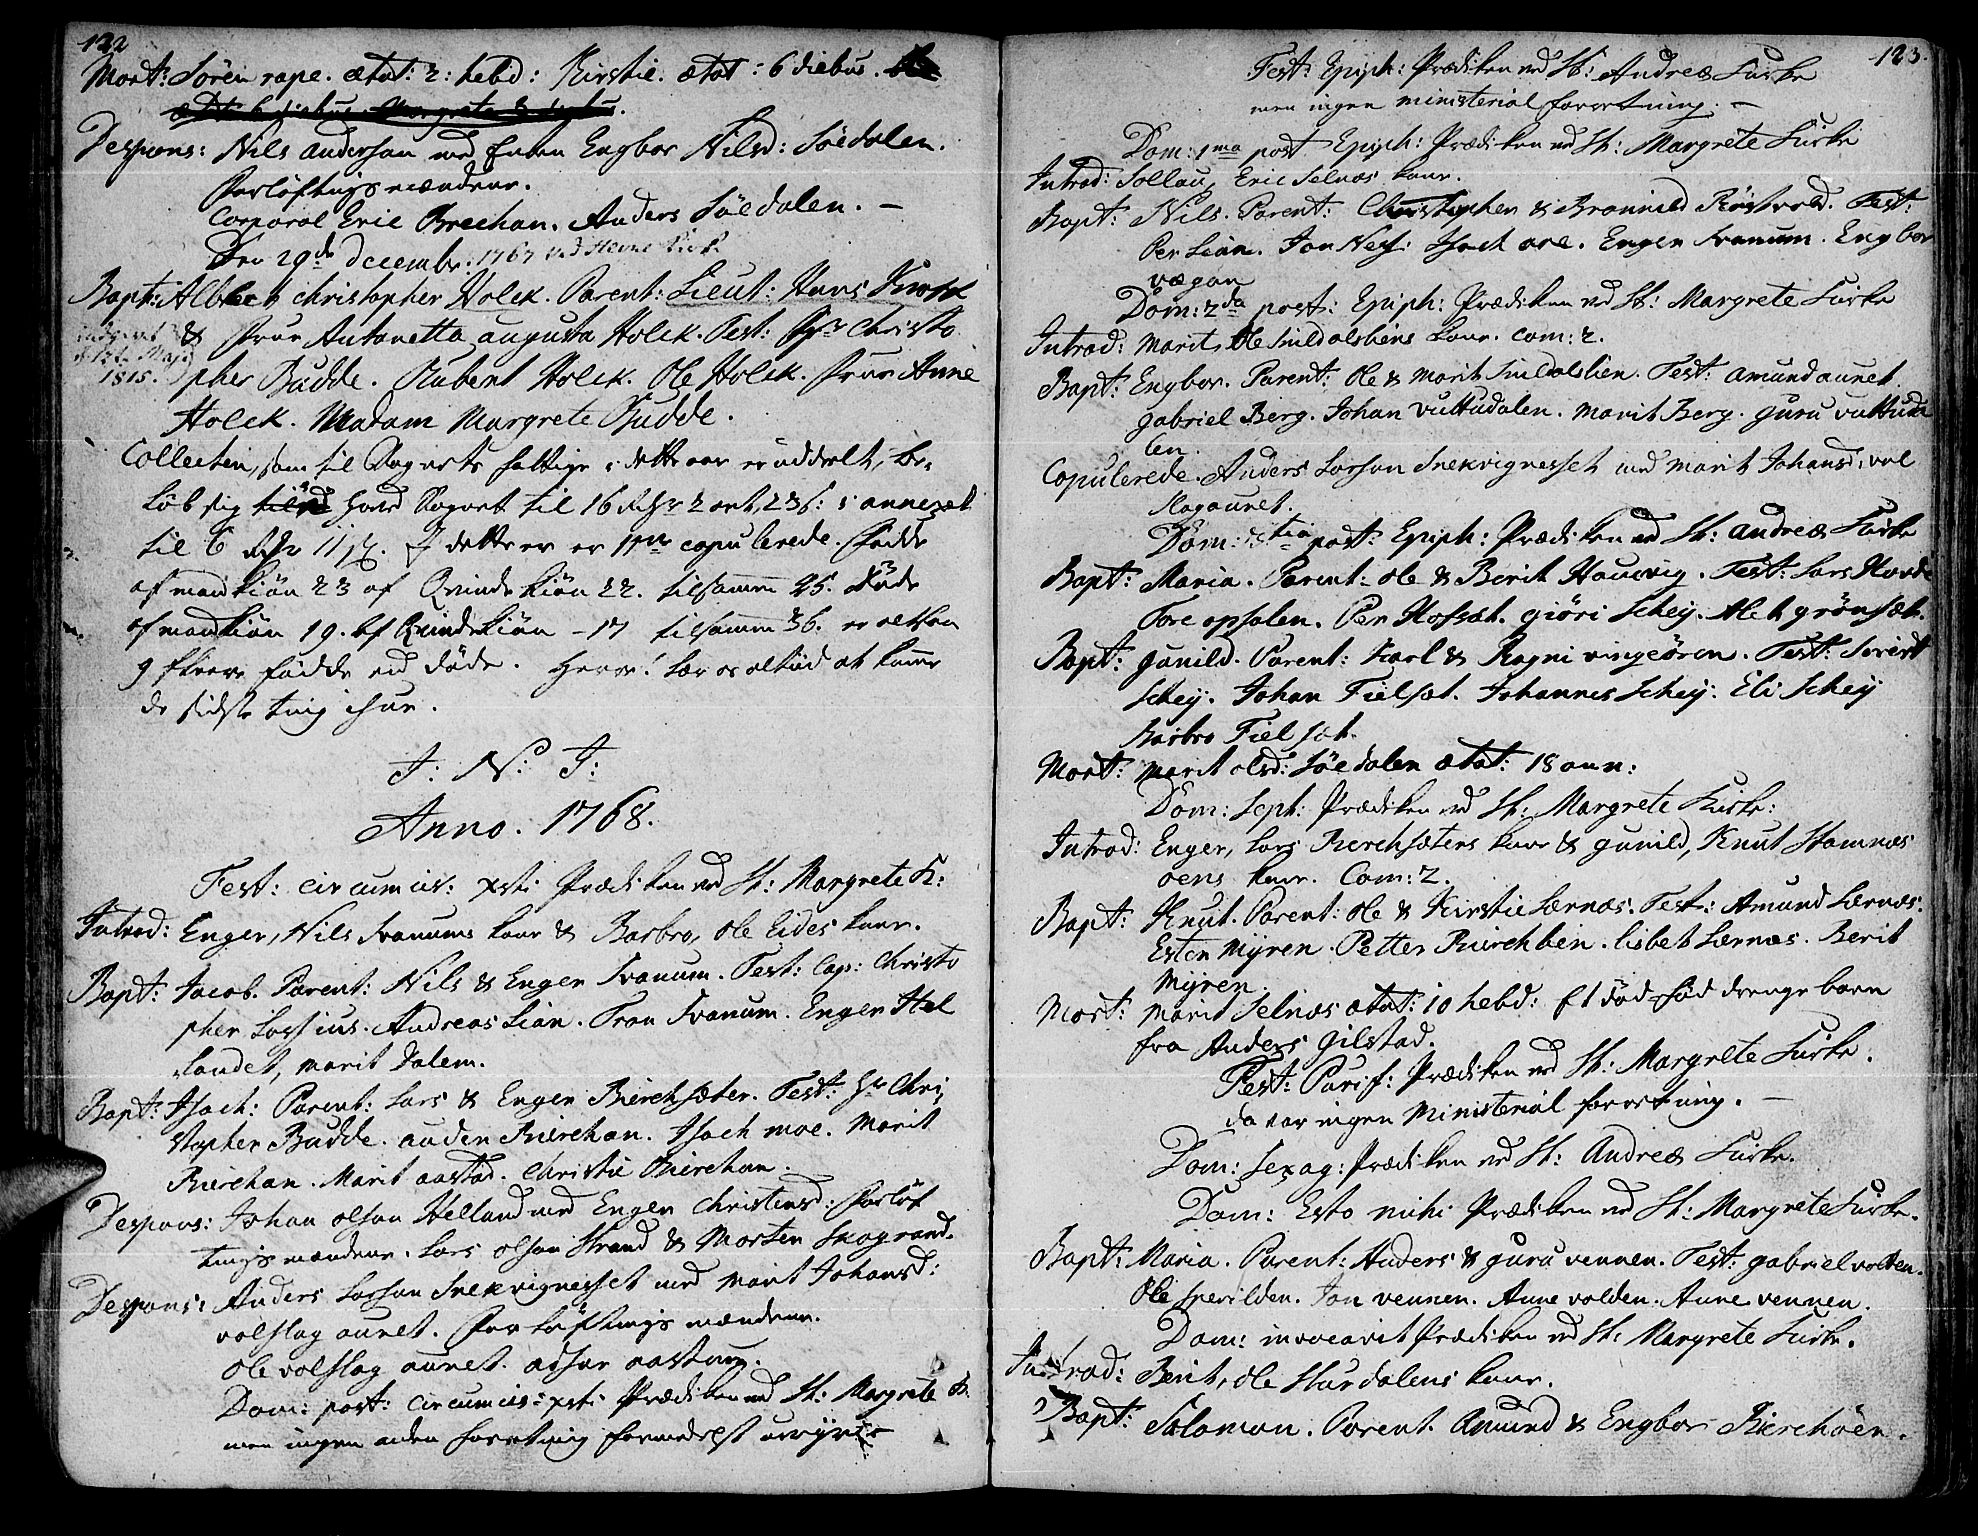 122
Mort: Sören rape. ætat: 2: hebd: Kirstie. ætat: 6 diebus.
Despons: Nils Anderson med Enken Engbor Nilsd: Söedalen.
Forlöftnings mændene.
Corporal Eric Brechan. Anders Söedalen. —
Den 29de decembr. 1767 ved Hevne Kirk
Bapt: Albrect christopher Holck. Parent: Lieut: Hans
& Frue Antonetta augusta Holck. Test: Hr Christo
1815. pher Budde. Rubert Holck. Ole Holck. Frue Anne
Holck. Madam Margrete Budde.
Collecten, som til Sognets fattige i dette aar er uddelt, be-
löb sig hoved Sognet til 16 Rdr 2 ort, 23 s: i annexet
til 6 Rdr 11 s. I dette aar er 11 par copulerede. födde
af mandkiön 23 af Qvindekiön 22. tilsamm 45. döde
af mandkiön 19. af Qvindekiön - 17 tilsamm 36. er altsaa
9 fleere födde end döde. Herre! Lær os altiid at komme
de sidste ting ihue.
I: N: I:
Anno. 1768.
Fest: circumcis: xsti Prædiken ved St: Margrete K:
Introd: Enger, Nils Svanums kone & Barbro, Ole Eides kone.
Bapt: Jacob. Parent: Nils & Enger Svanum. Test: Cap: Christo
pher Lossius. Andreas Lian. Tron Svanum. Enger Hel
landet, marit dalem.
Bapt: Isach: Parent: Lars & Enger Bierchsæter. Test: Hr Chri
stopher Budde. auden Bierchan. Isach moe. Marit
Bierchan. Marit aastad. Christie Bierchan.
Despons: Johan olson Helland med Enger Christensd: Forlöf
tnings mændene. Lars olson Strand & Morten Skogrand.
Despons: Anders Larson Snekvignesset med Marit Johansd:
volslag aunet. Forlöftnings mændene.
Ole volslag aunet. adsur aastum.
Dom: post: circumcis: xsti Prædiken ved St: Margrete K.
men ingen anden forretning formedelst
123.
Fest: Epiph: Prædiken ved St: Andreæ Kirke
men ingen ministerial forretning. —
Dom: 1ma post Epiph: Prædiken ved St: Margrete Kirke
Introd: Sollau, Eric Selnæs kone.
Bapt: Nils. Parent: Christopher & Bronnild Röstvold. Test:
Per Lian. Jon Næss: Isach ore. Enger Svanum. Engbor
vægan
Dom: 2da post: Epiph: Prædiken ved St: Margrete Kirke
Introd: Marit, Ole Snildalsliens kone. com: 2.
Bapt: Engbor. Parent: Ole & Marit Snildalslien. Test: Amund aunet.
gabriel Berg. Johan vuttudalen. Marit Berg. guru vuttuda
len.
Copulerede. Anders Larson Snekvignesset med Marit Johansd: vol
slagaunet.
Dom: 3tia post: Epiph: Prædiken ved St: Andreæ Kirke
Bapt: Maria. Parent: Ole & Berit Hauvig. Test: Lars Hovde
Tore opsalen. Per Hofset. giöri Schey. Marit grönset.
Bapt: gunild. Parent: Karl & Ragni vingeören. Test: Sivert
Schey. Johan Fielset. Johannes Schey. Eli Schey
Barbro Fielset.
Mort: Marit olsd: Söedalen ætat: 18 ann:
Dom: Sept: Prædiken ved St: Margrete Kirke:
Introd: Enger, Lars Bierchsæters kone & gunild, Knut Stamnæs
oens kone. Com: 2.
Bapt: Knut. Parent: Ole & Kirstie Lernæs. Test: Amund Lernæs.
Esten Myren. Petter Bierchlien. lisbet Lernæs. Berit
Myren.
Mort: Marit Selnæs ætat: 10 hebd: Et död-fød drenge barn
fra Anders gilstad.
Fest: Purif: Prædiken ved St: Margrete Kirke.
da var ingen Ministerial forretning. —
Dom: Sexag: Prædiken ved St: Andreæ Kirke.
Dom: Esto mihi Prædiken ved St: Margrete Kirke.
Bapt: Maria. Parent: Anders & guru vennen. Test: gabriel volden.
Ole sperilden. Jon vennen. Anne volden. Anne vennen.
Dom: invocavit Prædiken ved St: Margrete Kirke.
Introd: Berit, Ole Sturdalens kone.
Bapt: Solomon. Parent. Amund & Engbor Bierchöen.